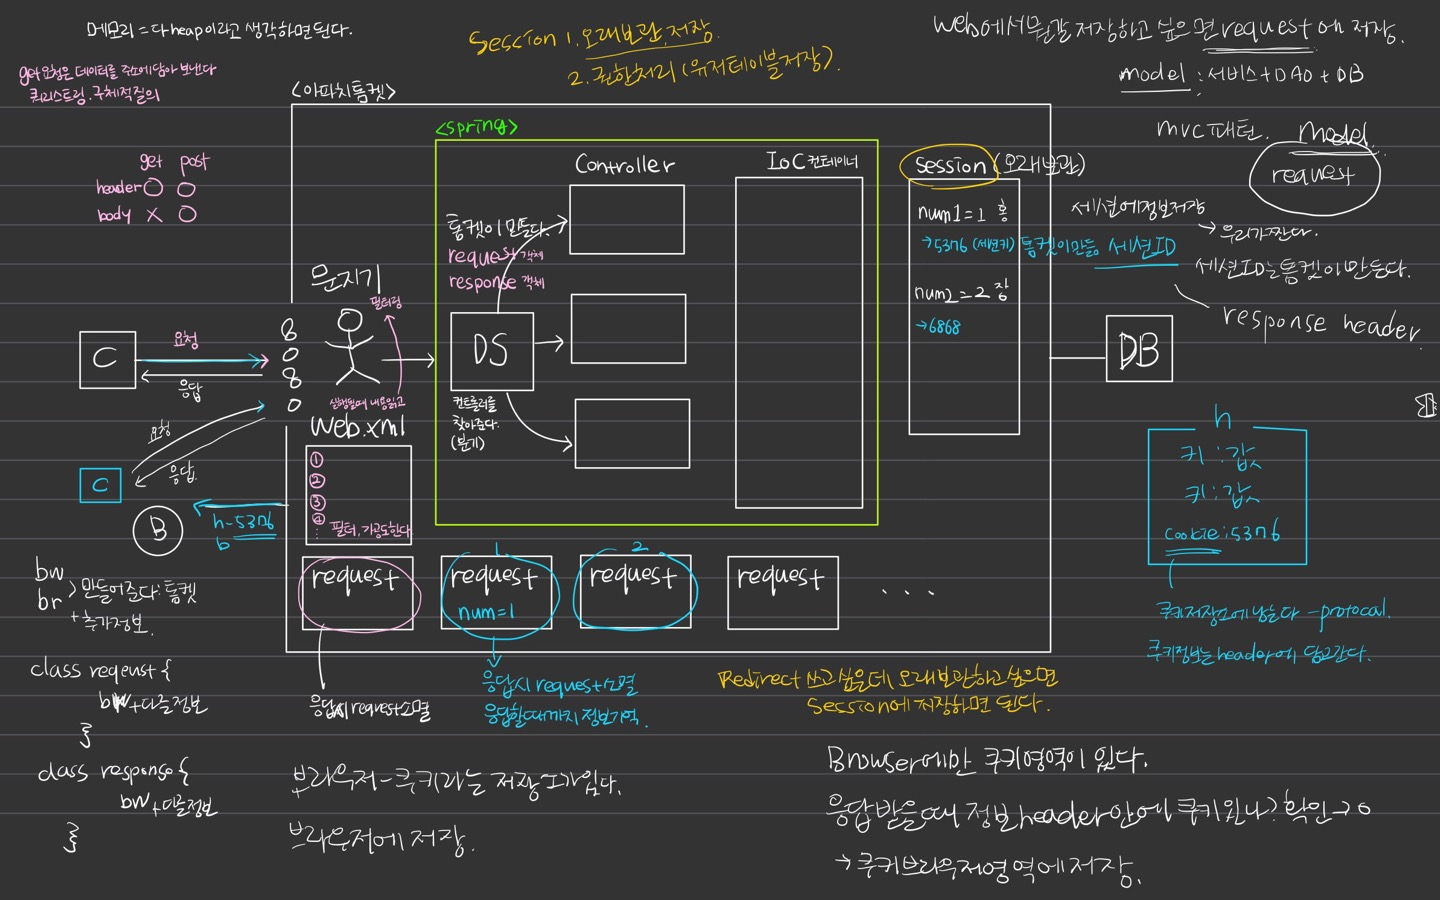 메모리 = 다 heap이라고 생각하면된다.
get요청은 데이터를 주소에 담아 보낸다
쿼리스트링. 구체적질의
get post
header O O
body X O
Session 1. 오래보관, 저장.
2. 권한처리 (유저테이블저장)
web에서 뭔갈 저장하고 싶으면 request에 저장.
model : 서비스 + DAO + DB
mvc 패턴. model
request
<아파치톰켓>
<spring>
Controller
IoC 컨테이너
Session (오래보관)
num1 = 1 홍
→ 5376 (세션키) 톰켓이만듦 세션ID
num2 = 2 장
→ 6868
세션에정보저장
→ 우리가짠다.
세션ID는톰켓이만든다.
response header
톰켓이 만든다.
request 객체
response 객체
DS
컨트롤러를
찾아준다.
(분기)
문지기
필터링
실행될때 내용읽고
Web.xml
①
②
③
④
필터, 가공도한다.
C
요청
응답
요청
응답.
C
B
h-5376
b
DB
h
키 : 값
키 : 값
cookie : 5376
쿠키저장소에남는다 - protocal.
쿠키정보는header에 담고간다.
request
1
request
num=1
2
request
request
. . .
응답시request소멸
응답시 request소멸
응답할때까지 정보기억.
Redirect 쓰고싶은데, 오래보관하고싶으면
Session에저장하면 된다.
bw
br
> 만들어준다:톰켓
+추가정보.
class reqeust {
bw+다른정보
}
class response {
bw+다른정보
}
브라우저-쿠키라는 저장소가있다.
브라우저에 저장.
Browser에만 쿠키영역이 있다.
응답 받을때 정보header안에 쿠키있나? 확인→o
→ 쿠키브라우저영역에저장.